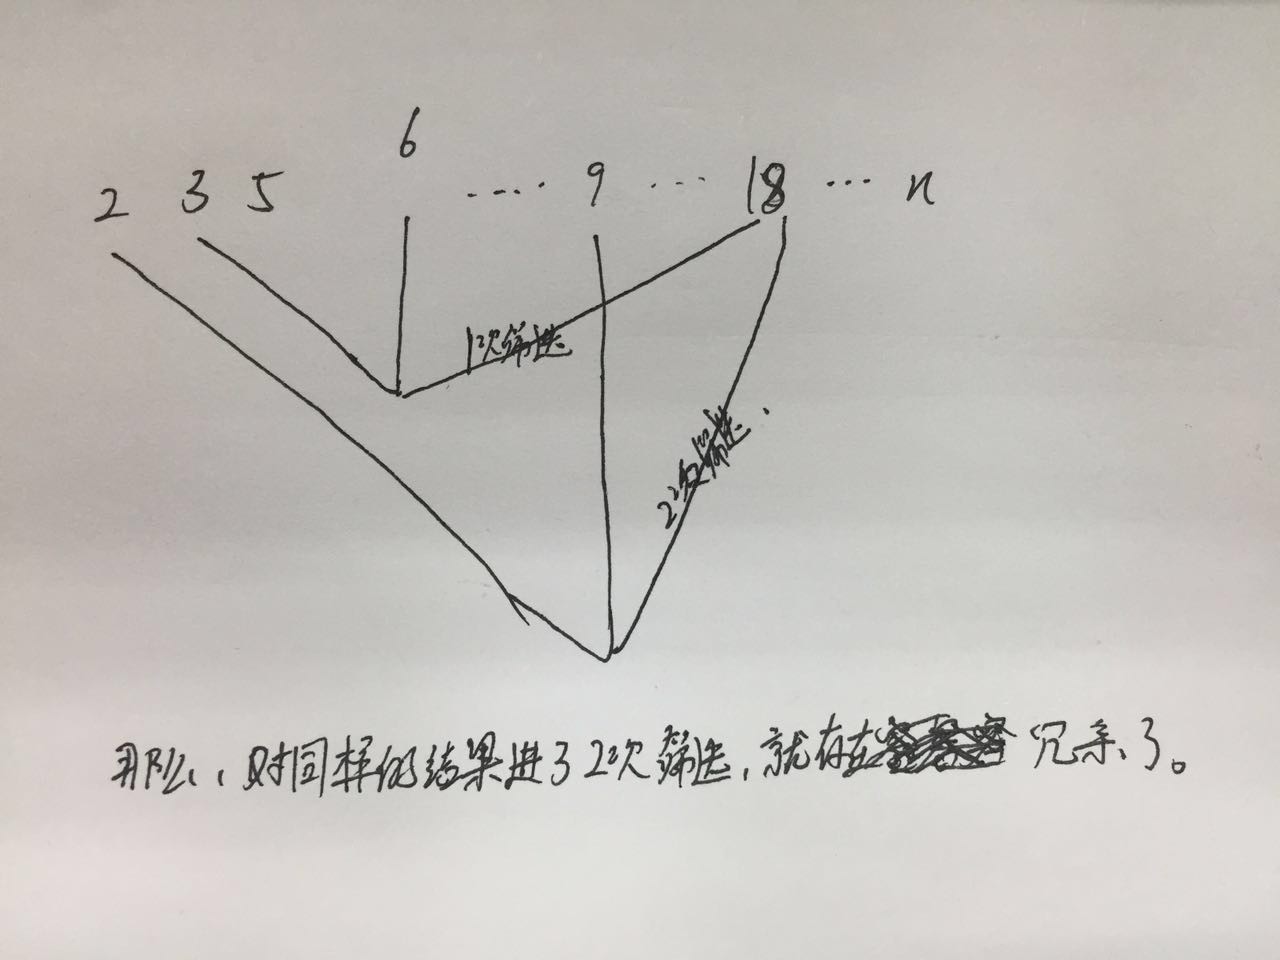 6
2 3 5 .... 9 ... 18 ... n
1次筛选
2次筛选.
那么,对同样的结果进了2次筛选,就存在冗余了。